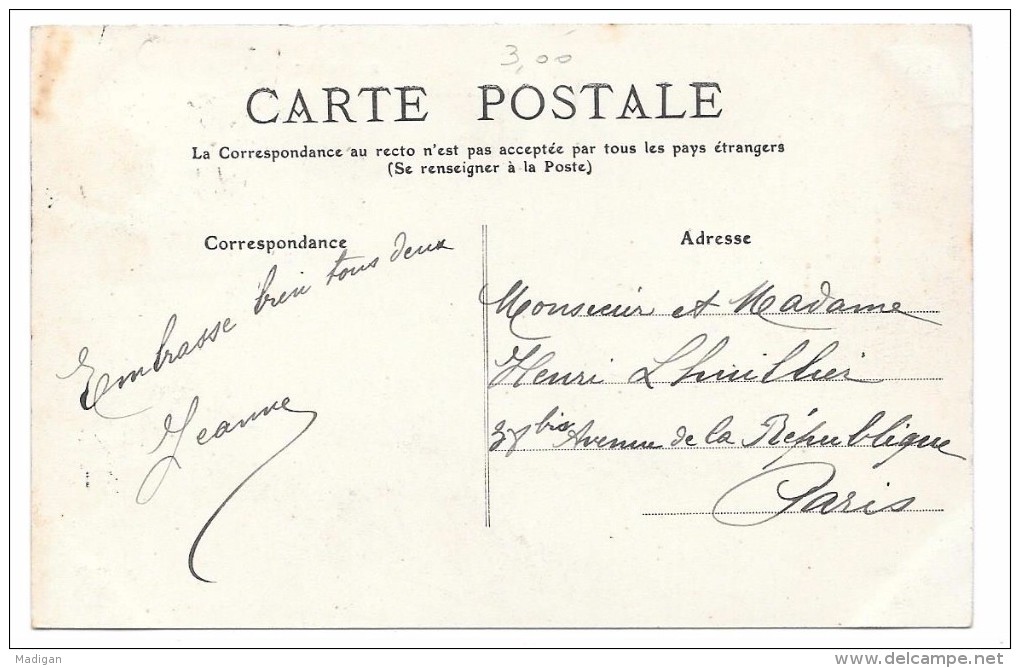 3,00
CARTE POSTALE
La Correspondance au recto n'est pas acceptée par tous les pays étrangers
(Se renseigner à la Poste)
Correspondance
Embrasse bien tous deux
Jeanne
Adresse
Monsieur et Madame
Henri Lhuillier
bis Avenue de la République
Paris
Madigan
www.delcampe.net